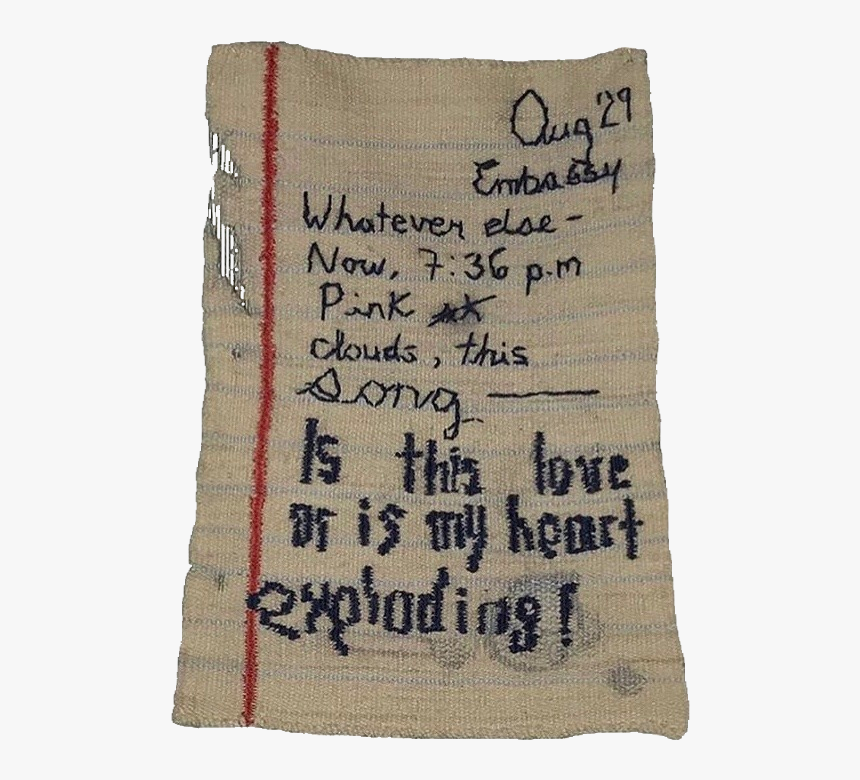 Aug '29
Embassy
Whatever else -
Now, 7:36 p.m
Pink
clouds, this
Song —
Is this love
or is my heart
exploding!